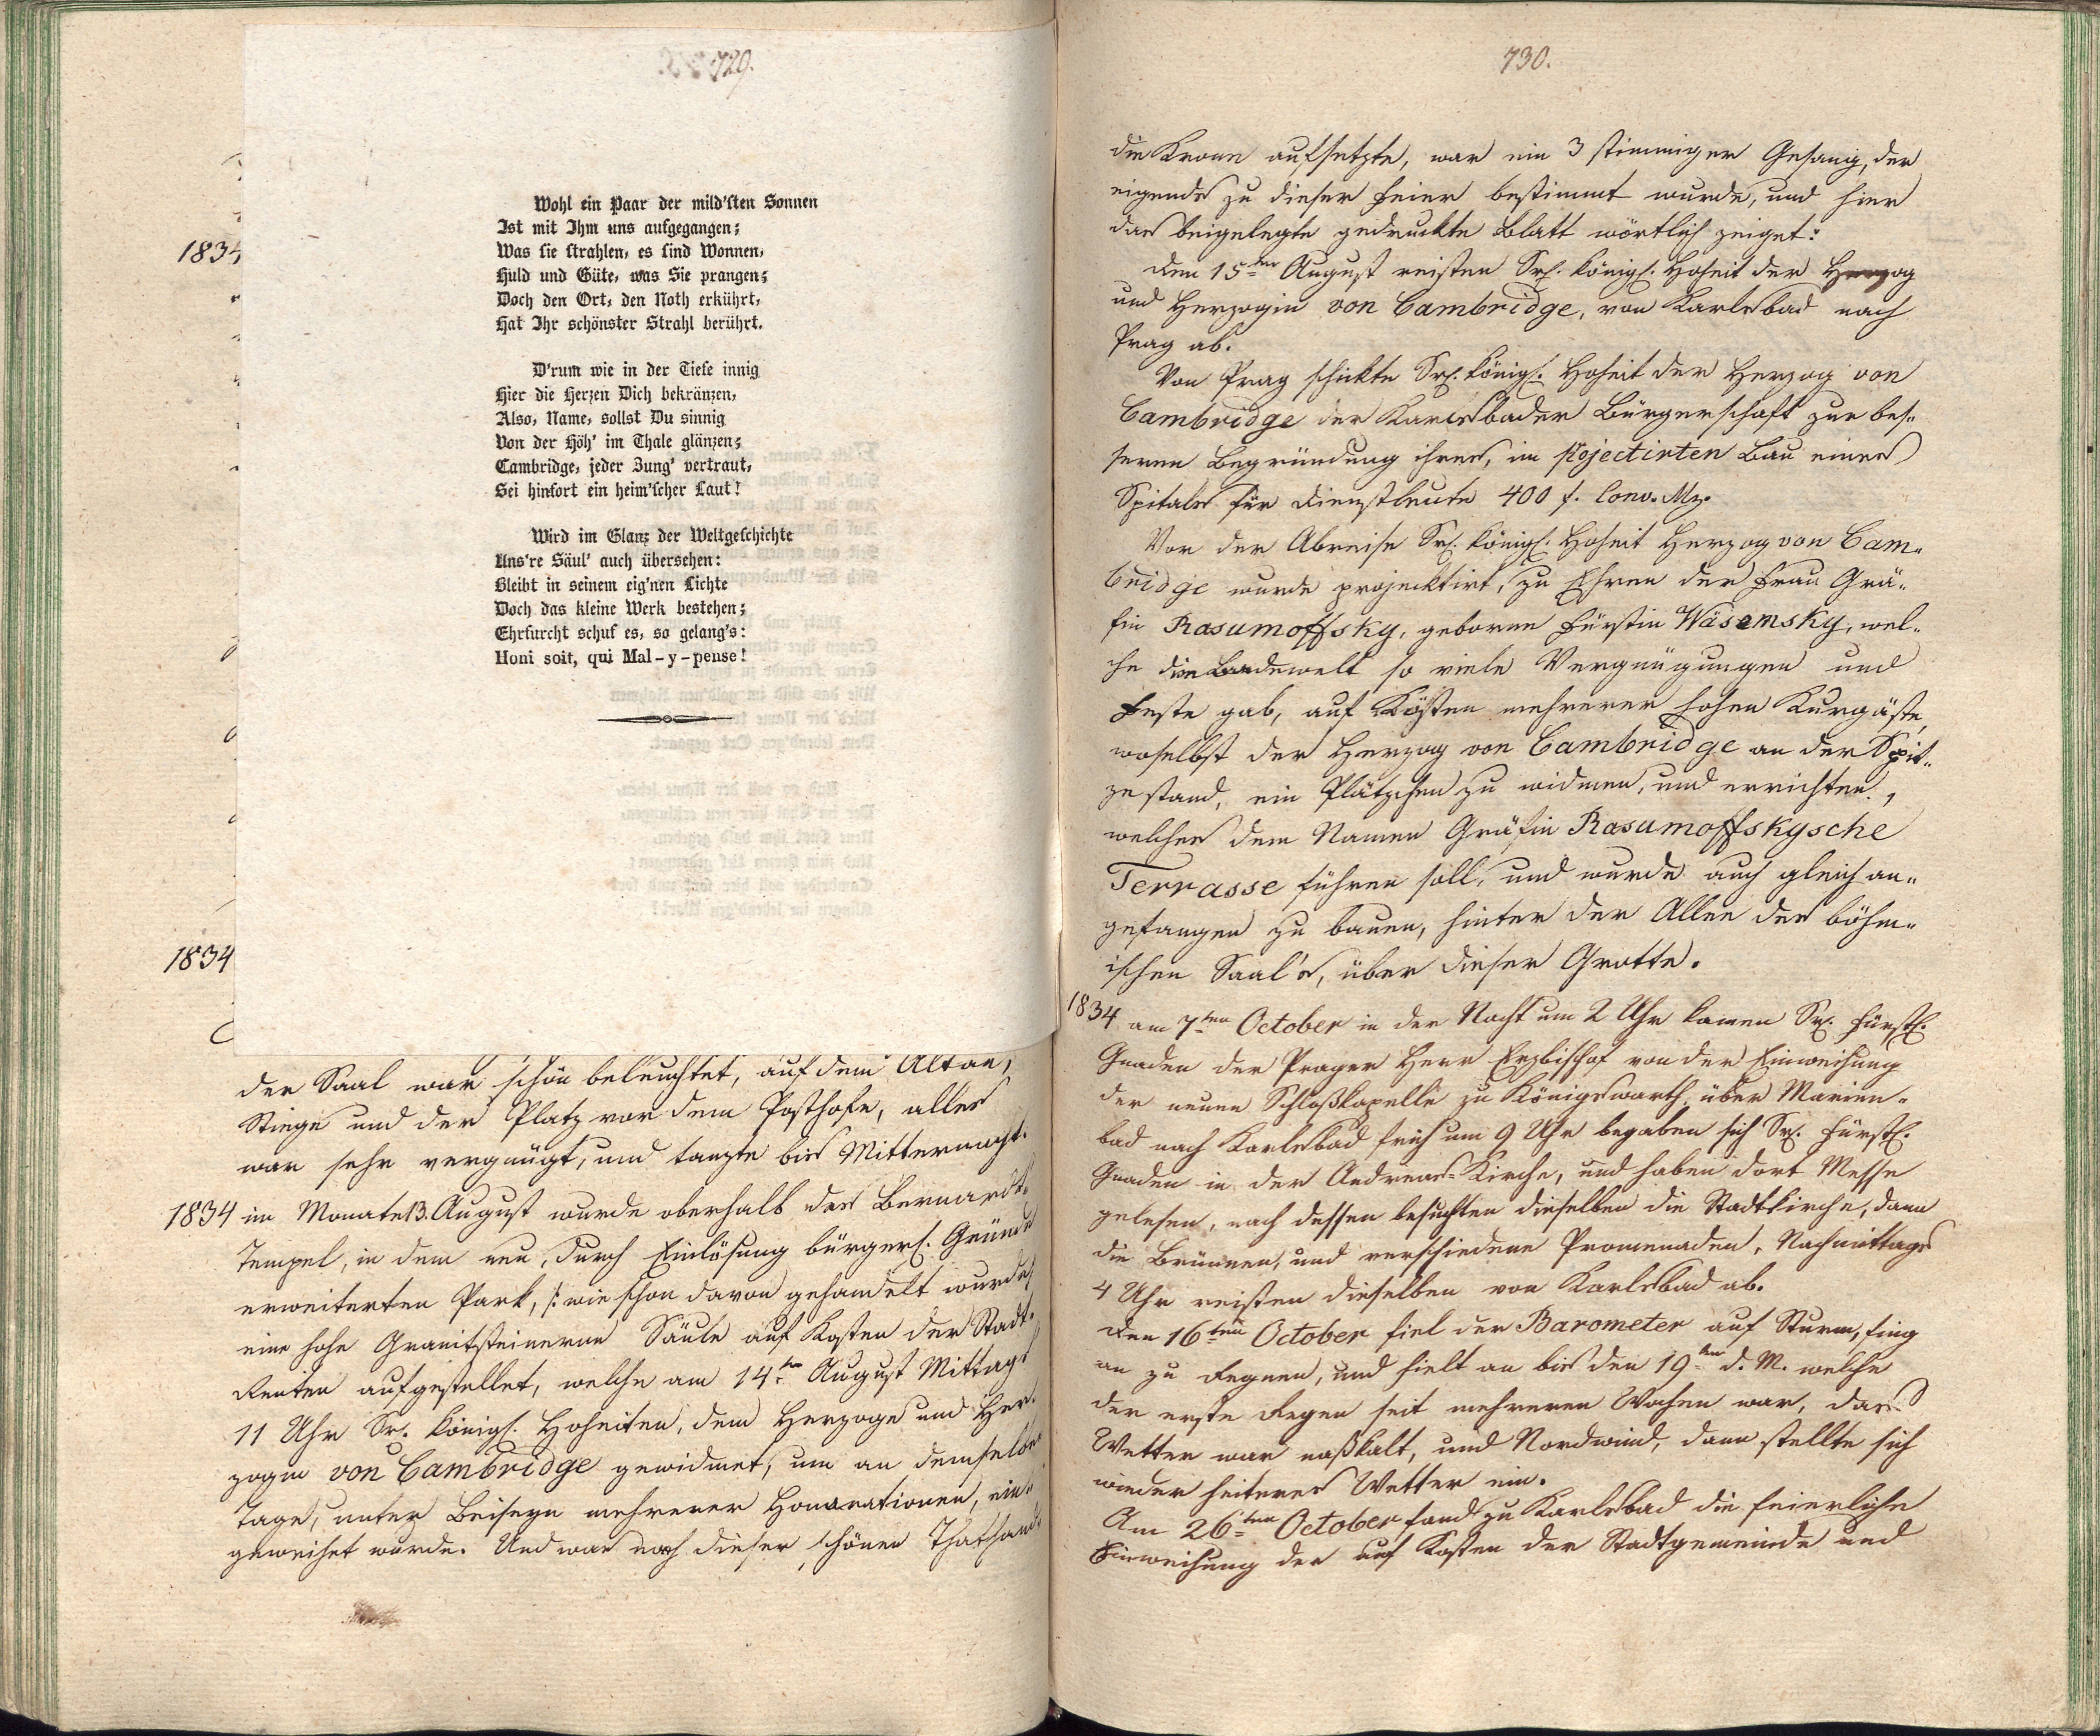 729.
Wohl ein Paar der mild'sten Sonnen
Ist mit Ihm uns aufgegangen;
Was sie strahlen, es sind Wonnen,
Huld und Güte, was Sie prangen;
Doch den Ort, den Noth erkührt,
Hat Ihr schönster Strahl berührt.
D'rum wie in der Tiefe innig
Hier die Herzen Dich bekränzen,
Also, Name, sollst Du sinnig
Von der Höh' im Thale glänzen;
Cambridge, jeder Zung' vertraut,
Sei hinfort ein heim'scher Laut!
Wird im Glanz der Weltgeschichte
Uns're Säul' auch übersehen:
Bleibt in seinem eig'nen Lichte
Doch das kleine Werk bestehen;
Ehrfurcht schuf es, so gelang's:
Honi soit, qui Mal-y-pense!
1834
1834
der Saal war schön beleuchtet, auf dem Altan,
Stiege und der Platz vor dem Posthofe, alles
war sehr vergnügt, und tanzte bis Mitternacht.
1834 im Monate 13. August wurde oberhalb des Bernardt„
Tempel, in dem neu, durch Einlösung bürgerl. Gründe
erweiterten Park, /: wie schon davon gehandelt wurde
eine hohe Granitsteinerne Säule auf Kosten der Stadt„
Renten aufgestellet, welche am 14ten August Mittags
11 Uhr Sr. königl. Hoheiten, dem Herzoge und Her„
zogin von Cambridge gewidmet, um an demselben
Tage, unter Beiseyn mehrerer Honorationen, ein„
geweihet wurde. Und war noch dieser schönen Thathand„
730.
die Krone aufsetzte, war ein 3 stimmiger Gesang, der
eigends zu dieser Feier bestimmt wurde, und hier
das beigelegte gedruckte Blatt wörtlich zeiget:
Den 15ten August reisten Sr. königl. Hoheit der Herzog
und Herzogin von Cambridge, von Karlsbad nach
Prag ab.
Von Prag schickte Sr. königl. Hoheit der Herzog von
Cambridge der Karlsbader Bürgerschaft zur bes„
seren Begründung ihres, im projectirten Bau eines
Spitals für Dienstleute 400 f. Conv. Mz.
Vor der Abreise Sr. königl. Hoheit Herzog von Cam„
bridge wurde projecktirt, zu Ehren der Frau Grä„
fin Rasumoffsky, geborne Fürstin Wäsemsky, wel„
che die Badewelt so viele Vergnügungen und
Feste gab, auf Kösten mehrerer hohen Kurgäste,
woselbst der Herzog von Cambridge an der Spit„
ze stand, ein Plätzchen zu widmen, und errichten,
welches dem Namen Gräfin Rasumoffskysche
Terrasse führen soll, und wurde auch gleich an„
gefangen zu bauen, hinter der Allee des böhm„
ischen Saal's, über dieser Grotte.
1834 am 7ten October in der Nacht um 2 Uhr kamen Sr. Fürstl.
Gnaden der Prager Herr Erzbischof von der Einweihung
der neuen Schloßkapelle zu Königswarth, über Marien„
bad nach Karlsbad früh um 9 Uhr begaben sich Sr. Fürstl.
Gnaden in der Andreas-Kirche, und haben dort Messe
gelesen, nach dessen besuchten dieselben die Stadtkirche, dann
die Brünnen, und verschiedene Promenaden, Nachmittags
4 Uhr reisten dieselben von Karlsbad ab.
Den 16ten October fiel der Barometer auf Sturm, fing
an zu Regnen, und hielt an bis den 19ten d. M. welche
der erste Regen seit mehreren Wochen war, das
Wetter war naßkalt, und Nordwind, dann stellte sich
wieder heiteres Wetter ein.
Am 26ten October fand zu Karlsbad die feierliche
Einweihung der auf Kosten der Stadtgemeinde und